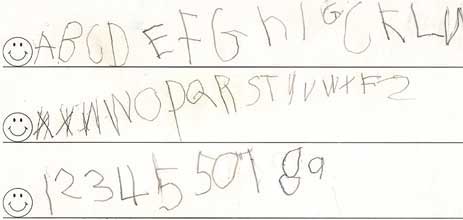 A B C D E F G h I G C K L U
X X W N O P Q R S T Y U V W X F 2
1 2 3 4 5 5 0 7 8 9